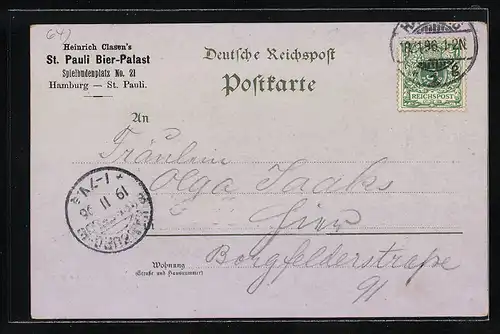 641
Heinrich Clasen's
St. Pauli Bier-Palast
Spielbudenplatz No. 21
Hamburg — St. Pauli.
Deutsche Reichspost
Postkarte
REICHSPOST
An
Fräulein
Olga Jaaks
Hier
Borgfelderstraße
91
Wohnung
(Straße und Hausnummer)
1-7V
19 11 98